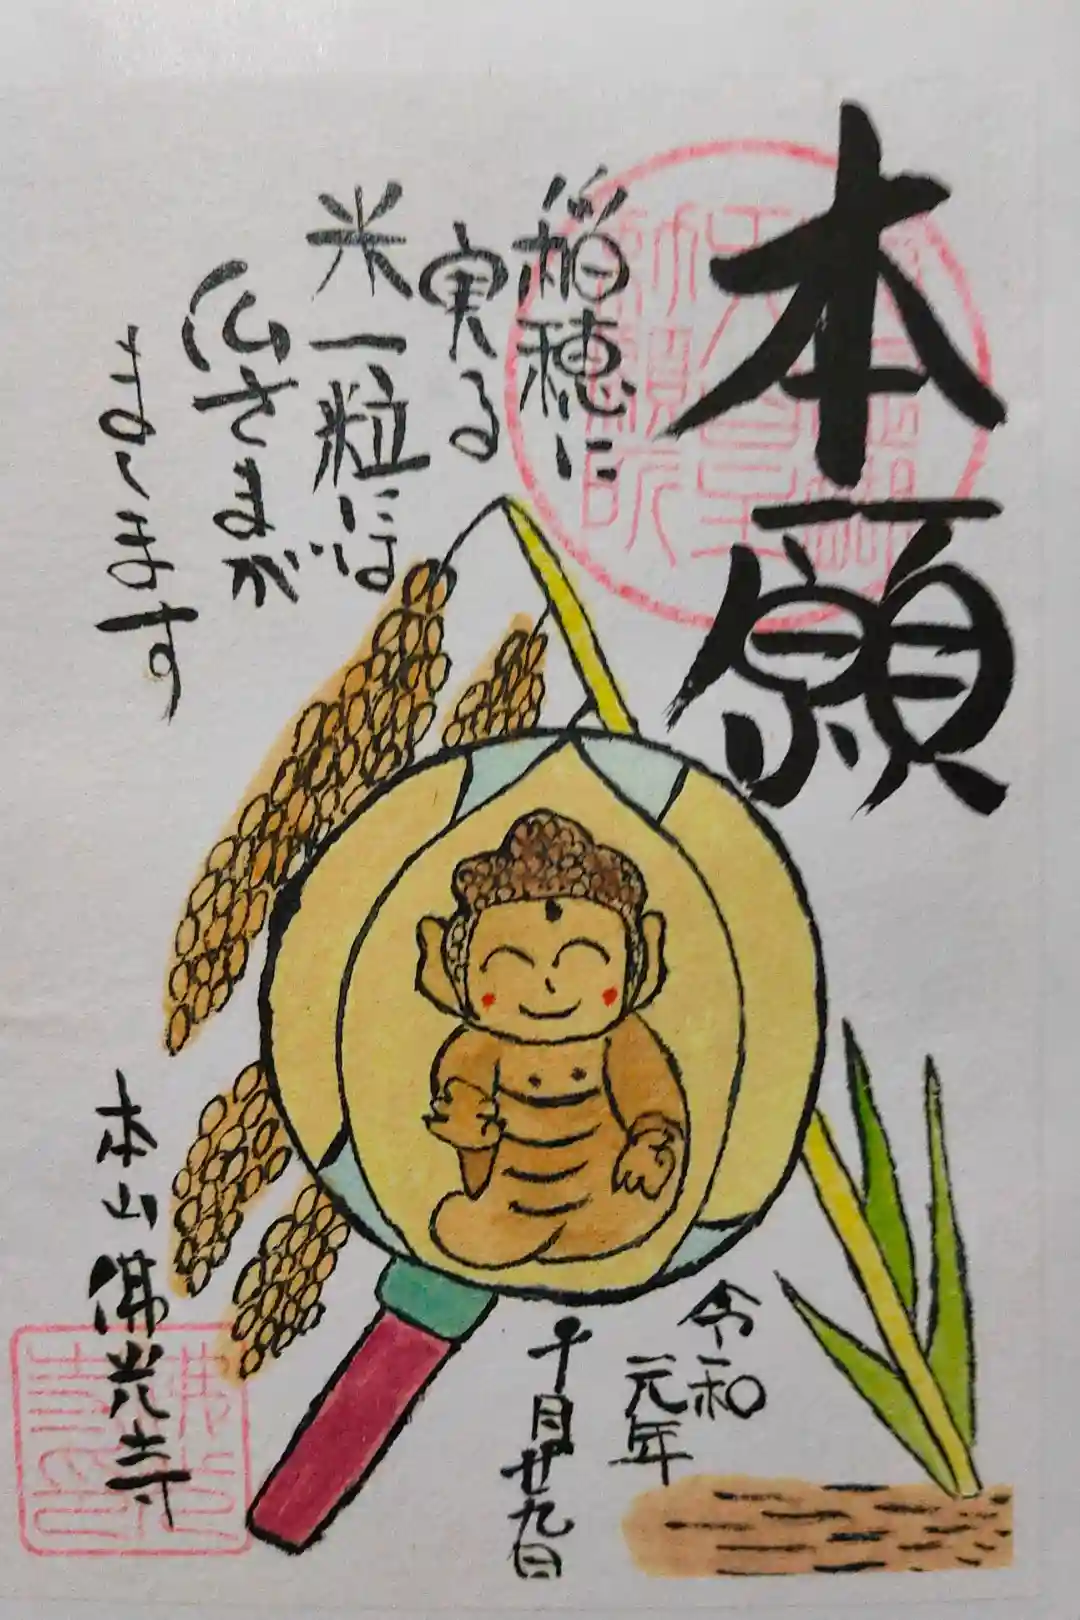 本願
稲穂に
実る
米一粒には
仏さまが
まします
令和
元年
十月廿九日
本山佛光寺